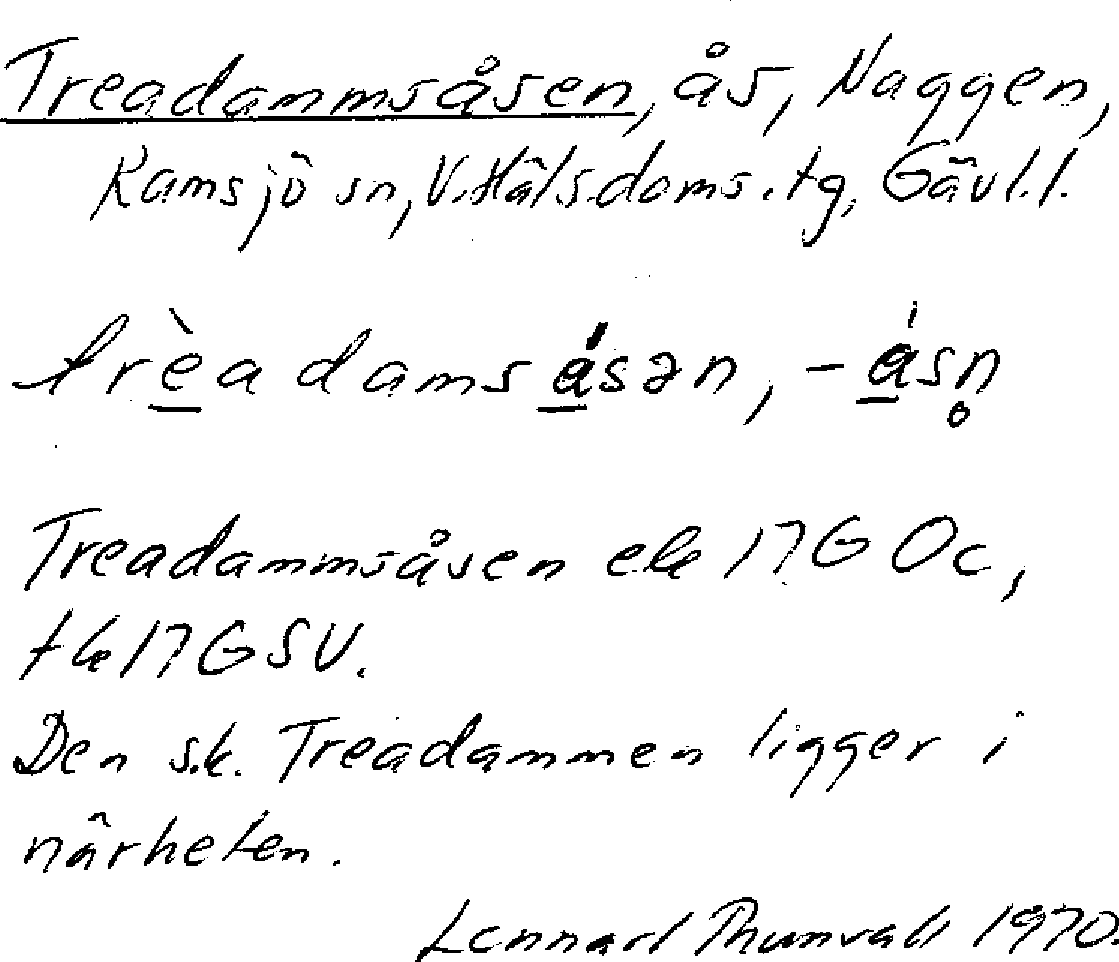 Treadammsåsen, ås, Naggen,
Ramsjö sn, V. Häls. doms. tg, Gävl. l.
trèadamsásən, -ásn̥
Treadammsåsen ek 17G Oc,
tk 17G SV.
Den s.k. Treadammen ligger i
närheten.
Lennart Thunvall 1970.